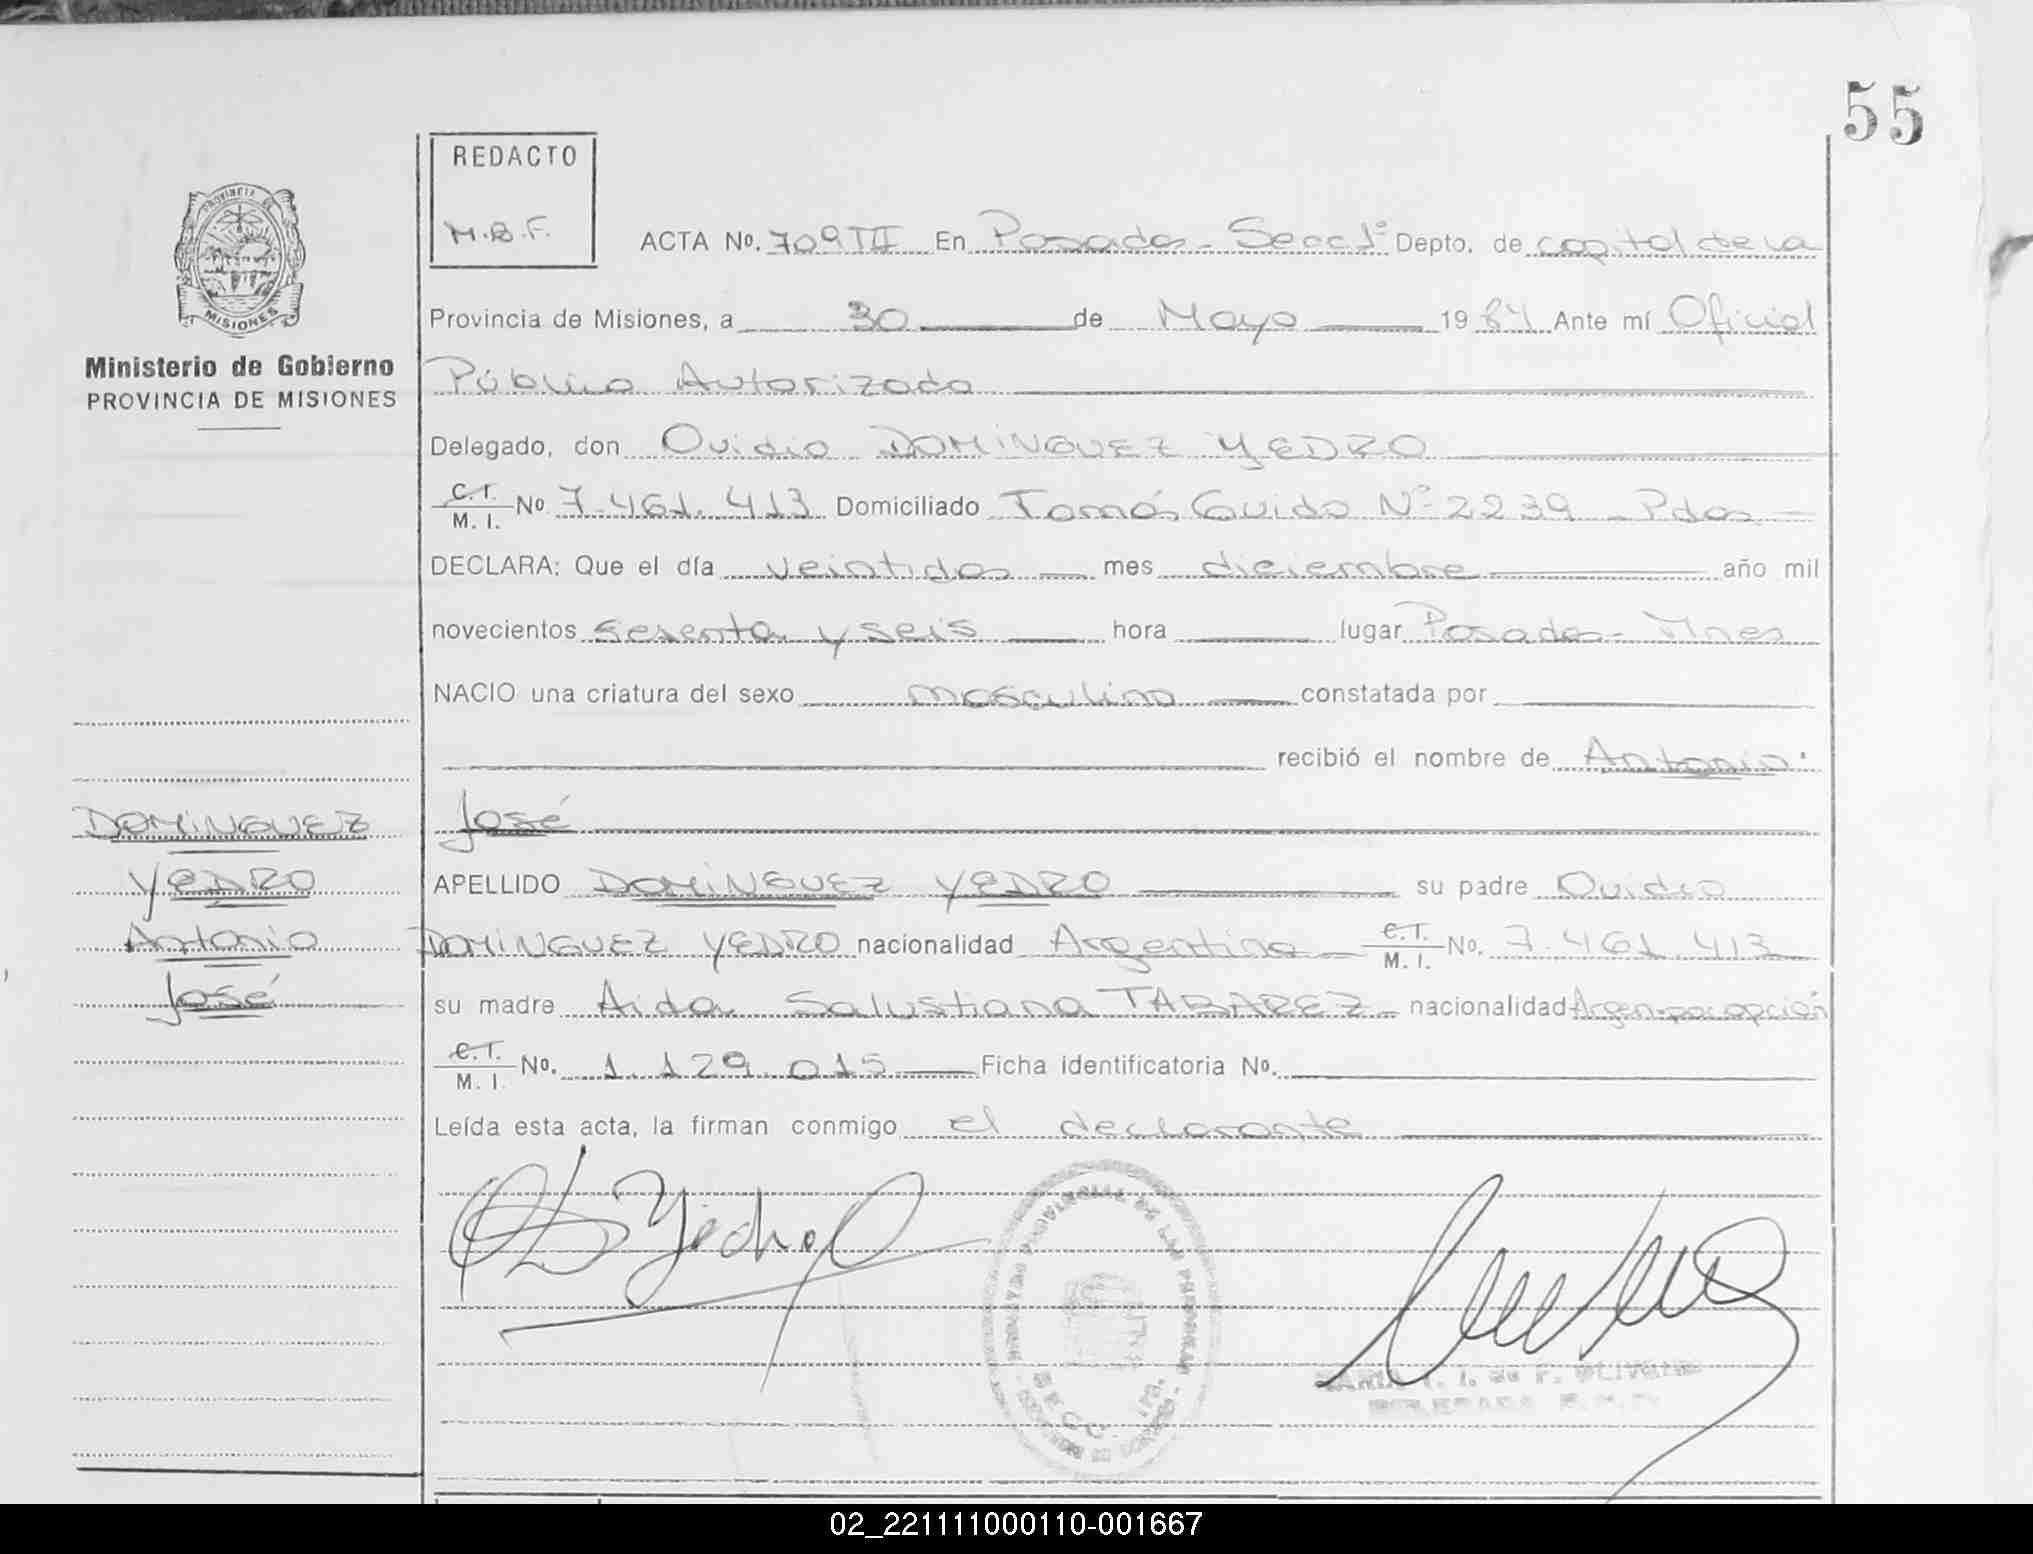 55
REDACTO
M.B.F.
ACTA No. 709 TII En Posadas - Secc 1º Depto. de capital de la
Provincia de Misiones, a 30 de Mayo 1984 Ante mí Oficial
Público Autorizado
Delegado, don Ovidio DOMINGUEZ YEDRO
C.I. M. I. No 7.461.413 Domiciliado Tomás Guido Nº 2239 - Pdas -
DECLARA: Que el día veintidos mes diciembre año mil
novecientos sesenta y seis hora lugar Posadas - Mnes
NACIO una criatura del sexo masculino constatada por
recibió el nombre de Antonio
José
APELLIDO DOMINGUEZ YEDRO su padre Ovidio
DOMINGUEZ YEDRO nacionalidad Argentina C.I. M. I. No. 7.461.413
su madre Aida Salustiana TABAREZ - nacionalidad Argen. por opción
C.I. M. I. No. 1.129.015 Ficha identificatoria No.
Leída esta acta, la firman conmigo el declarante
PROVINCIA DE
MISIONES
Ministerio de Gobierno
PROVINCIA DE MISIONES
DOMINGUEZ
YEDRO
Antonio
José
SECC.
02_221111000110-001667